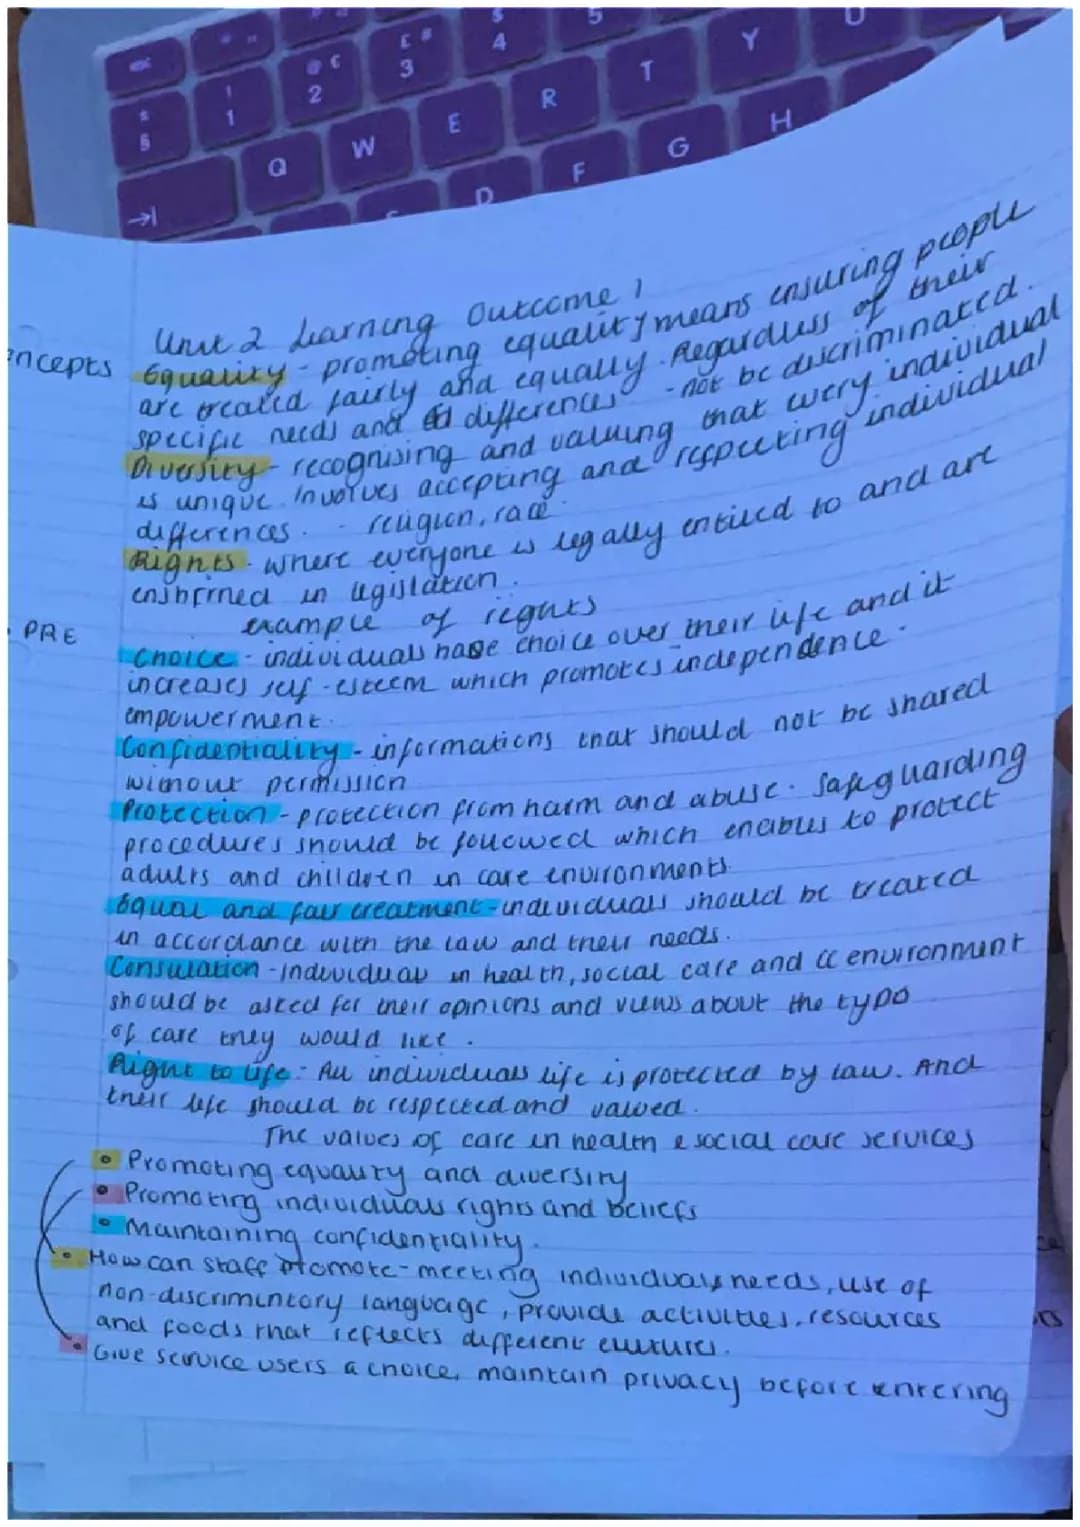 esc
! 1
@ € 2
£ # 3
$ 4
5
± §
Q W E R T Y U
D F G H
Unit 2 Learning Outcome 1
encepts
Equality - promoting equality means ensuring people
are treated fairly and equally. Regardless of their
specific needs and differences - not be discriminated.
Diversity - recognising and valuing that every individual
is unique. Involves accepting and respecting individual
differences. - religion, race
Rights - where everyone is legally entitled to and are
enshrined in legislation.
example of rights
PRE
Choice - individuals have choice over their life and it
increases self-esteem which promotes independence.
empowerment.
Confidentiality - informations that should not be shared
without permission
Protection - protection from harm and abuse. Safeguarding
procedures should be followed which enables to protect
adults and children in care environments.
Equal and fair treatment - individuals should be treated
in accordance with the law and their needs.
Consulation - individual in health, social care and cc environment
should be asked for their opinions and views about the typo
of care they would like.
Right to life: All individuals life is protected by law. And
their life should be respected and valued.
The values of care in health & social care services
• Promoting equality and diversity
• Promoting individuals rights and beliefs
• Maintaining confidentiality.
• How can staff promote - meeting individuals needs, use of
non-discrimintory language, provide activities, resources
and foods that reflects different cultures.
• Give service users a choice, maintain privacy before entering